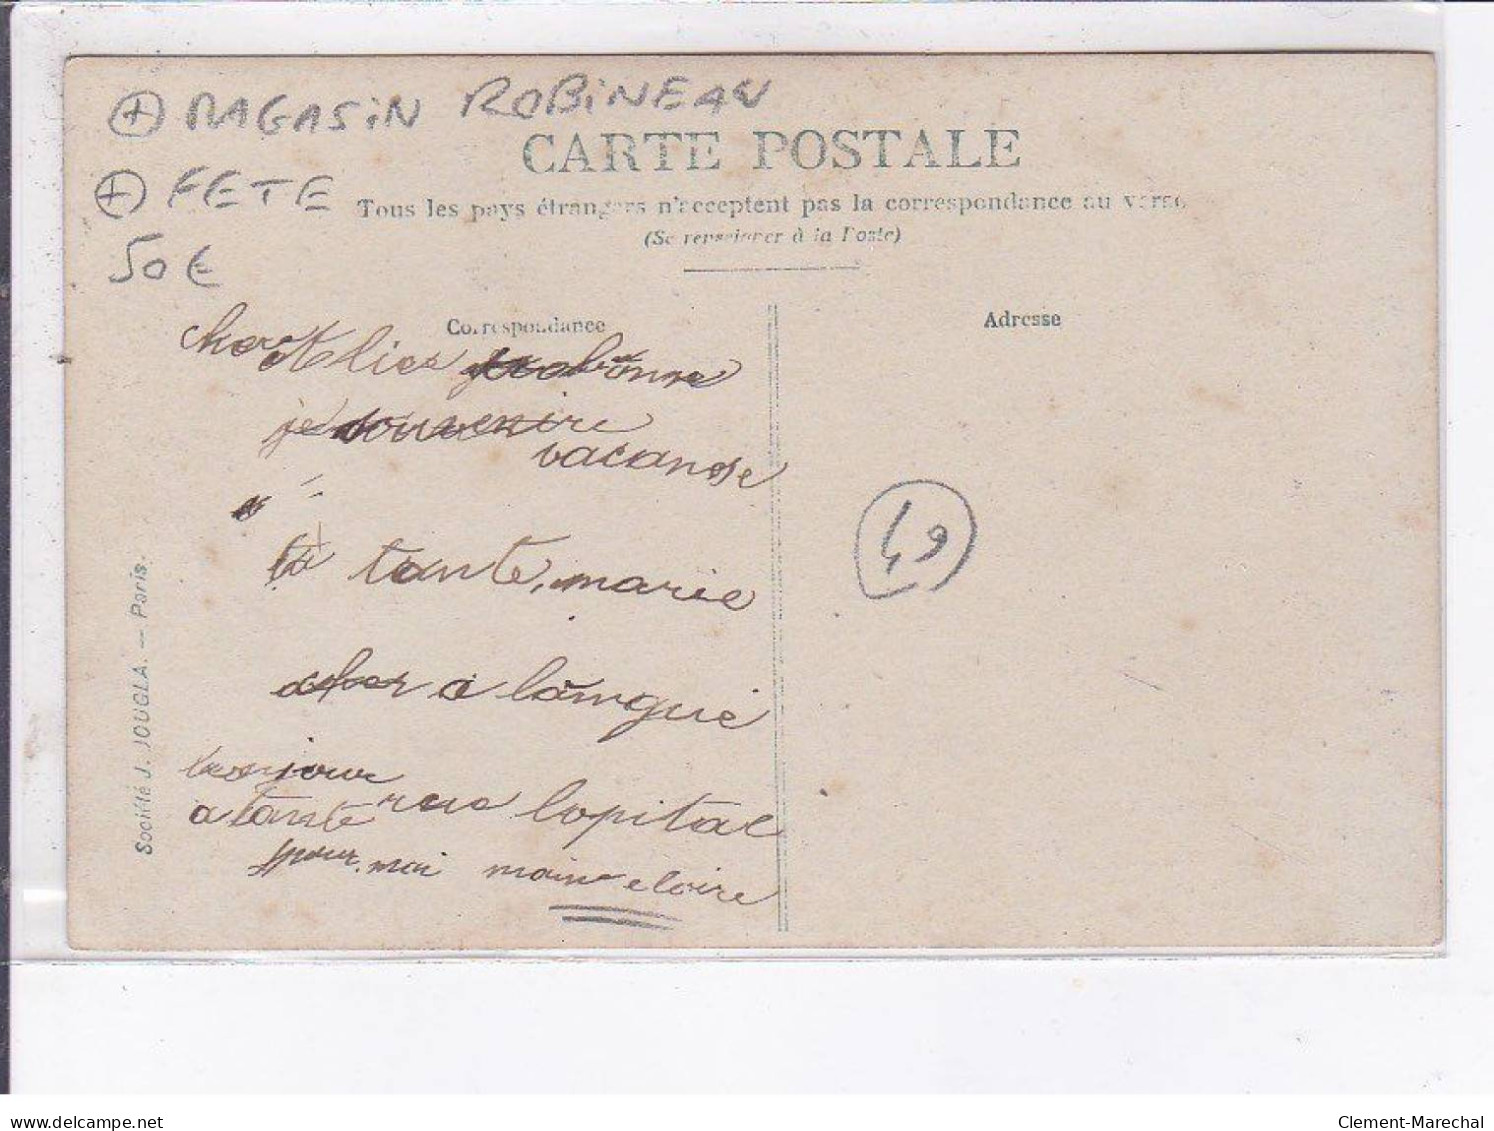 + MAGASIN ROBINEAU
+ FETE
50 €
CARTE POSTALE
Tous les pays étrangers n'acceptent pas la correspondance au verso
(Se renseigner à la Poste)
Correspondance
Adresse
bonne
je souvenire
vacanse
49
ta tante marie
a langue
bonjour
a tante rue lopital
pour moi maine e loire
Société J. JOUGLA. — Paris.
delcampe.net
Clement-Marechal